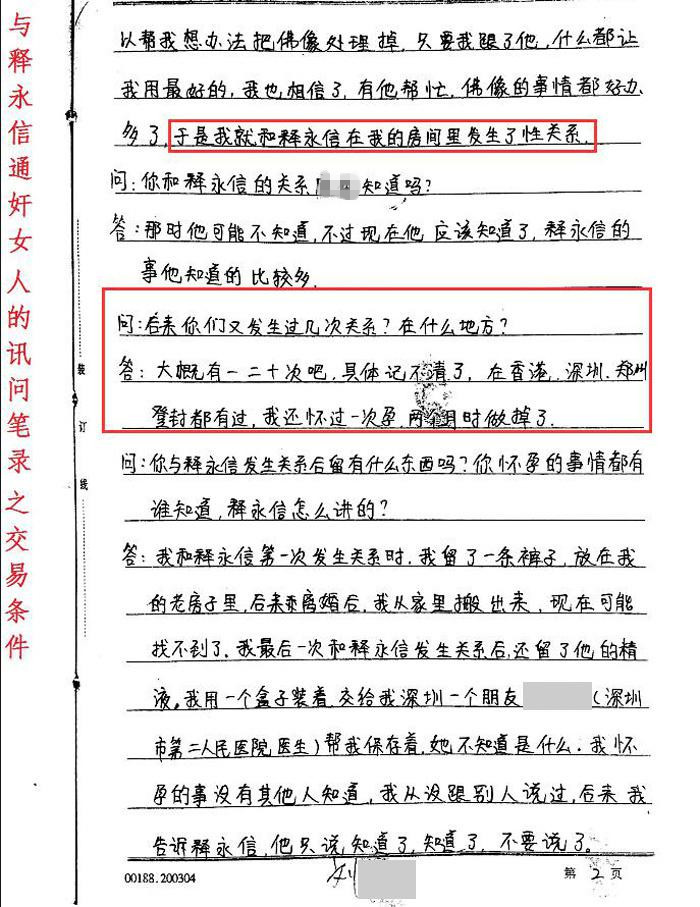 与释永信通奸女人的讯问笔录之交易条件
以帮我想办法把佛像处理掉,只要我跟了他,什么都让
我用最好的,我也相信了,有他帮忙,佛像的事情都好办
多了,于是我就和释永信在我的房间里发生了性关系.
问:你和释永信的关系知道吗?
答:那时他可能不知道,不过现在他应该知道了,释永信的
事他知道的比较多.
问:后来你们又发生过几次关系?在什么地方?
答:大概有一二十次吧,具体记不清了,在香港.深圳.郑州
登封都有过,我还怀过一次孕.两个月时做掉了.
问:你与释永信发生关系后留有什么东西吗?你怀孕的事情都有
谁知道,释永信怎么讲的?
答:我和释永信第一次发生关系时,我留了一条裤子,放在我
的老房子里,后来离婚后,我从家里搬出来,现在可能
找不到了.我最后一次和释永信发生关系后,还留了他的精
液,我用一个盒子装着交给我深圳一个朋友(深圳
市第二人民医院医生)帮我保存着,她不知道是什么.我怀
孕的事没有其他人知道,我从没跟别人说过,后来我
告诉释永信,他只说知道了,知道了,不要说了。
装
订
线
00188.200304
第2页